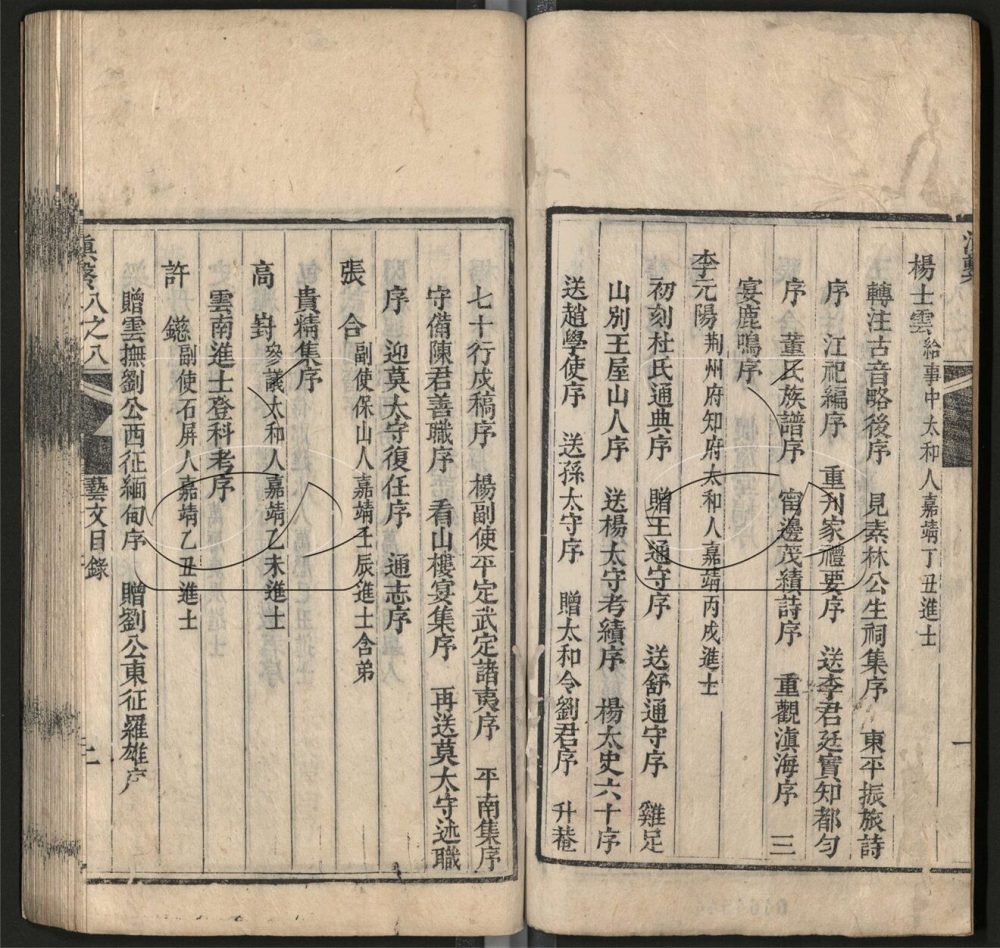 楊士雲給事中太和人嘉靖丁丑進士
轉注古音略後序 見素林公生祠集序 東平振旅詩
序 江祀編序 重刊家禮要序 送李君廷實知都勻
序 董氏族譜序 甯邊茂績詩序 重觀滇海序 三
宴鹿鳴序
李元陽荆州府知府太和人嘉靖丙戌進士
初刻杜氏通典序 贈王通守序 送舒通守序 雞足
山別王屋山人序 送楊太守考績序 楊太史六十序
送趙學使序 送孫太守序 贈太和令劉君序 升菴
七十行戍稿序 楊副使平定武定諸夷序 平南集序
守備陳君善職序 看山樓宴集序 再送莫太守述職
序 迎莫太守復任序 通志序
張合副使保山人嘉靖壬辰進士含弟
貴精集序
高對參議太和人嘉靖乙未進士
雲南進士登科考序
許鎡副使石屏人嘉靖乙丑進士
贈雲撫劉公西征緬甸序 贈劉公東征羅雄序
滇繫八之八 藝文目錄